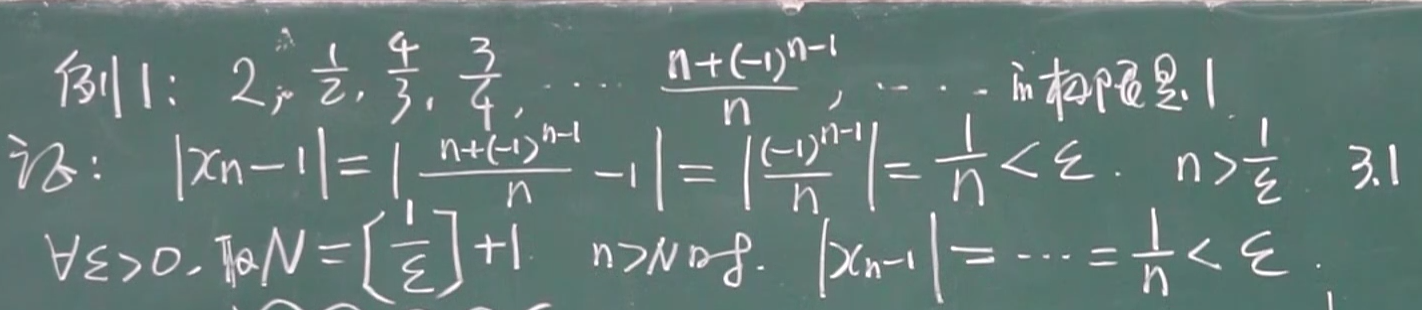 例1: 2, 1/2, 4/3, 3/4, ···· (n+(-1)^(n-1))/n, ···· 的极限是1
证: |xn-1|=|(n+(-1)^(n-1))/n -1|=|(-1)^(n-1)/n|=1/n<ε. n>1/ε 3.1
∀ε>0, 取N=[1/ε]+1 n>N时. |xn-1|=···=1/n<ε.